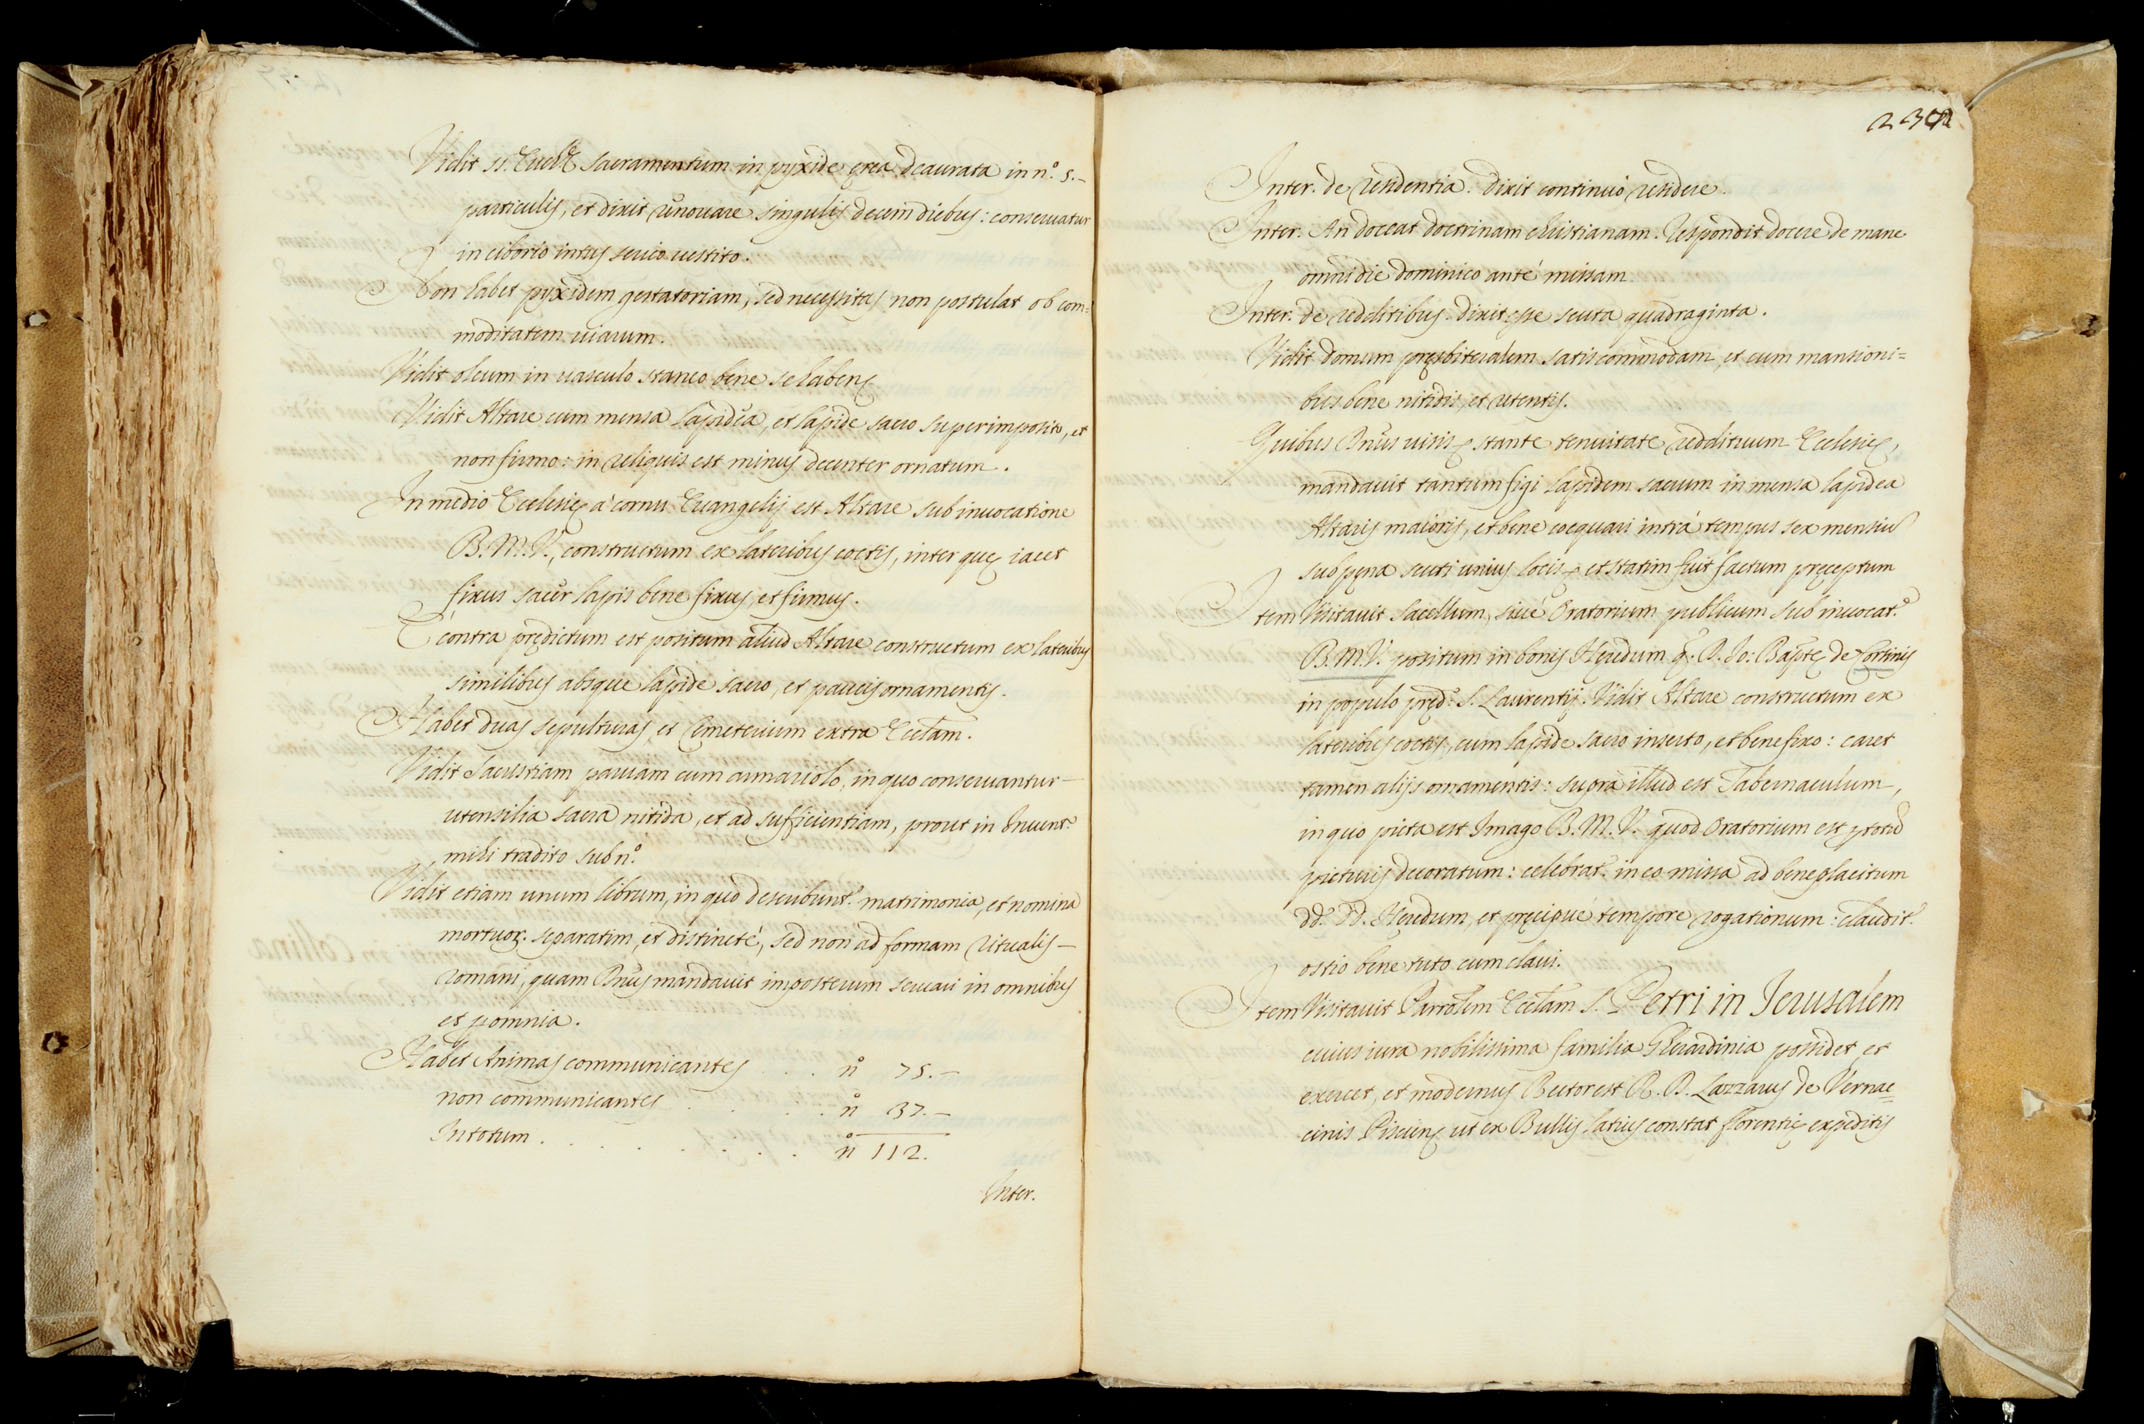 Vidit SS. Euchᵉ Sacramentum in pyxide ęrea deaurata in nº. 5.-
particulis, et dixit renouare singulis decem diebus: conseruatur
in ciborio intus serico uestito.
Non habet pyxidem gestatoriam, sed necessitas non postulat ob com=
moditatem uiarum.
Vidit oleum in uasculo staneo bene se habens
Vidit Altare cum mensa lapidea, et lapide sacro superimposito, et
non firmo: in reliquis est minus decenter ornatum.
In medio Ecclesię à cornu Euangelij est Altare sub inuocatione
B. M. V., constructum ex lateribus coctis, inter quę iacet
fixus sacer lapis bene fixus, et firmus.
E contra prędictum est positum aliud Altare constructum ex lateribus
similibus absque lapide sacro, et paucis ornamentis.
Habet duas sepulturas, et Cęmeterium extra Ecclam.
Vidit Sacristiam paruam cum armariolo, in quo conseruantur-
utensilia sacra nitida, et ad sufficientiam, prout in Inuent.
mihi tradito sub nº.
Vidit etiam unum librum, in quo describunt. matrimonia, et nomina
mortuor. separatim, et distincté, sed non ad formam Ritualis-
Romani, quam Dnus mandauit imposterum seruari in omnibus
et p omnia.
Habet Animas communicantes . . . . nº 75.-
non communicantes . . . . . nº 37.-
In totum . . . . . . . . nº 112.
Inter.
232
Inter. de residentia. dixit continuò residere.
Inter. An doceat doctrinam christianam. Respondit docere de mane
omni die dominico anté missam.
Inter. de redditibus. dixit esse scuta quadraginta.
Vidit domum pręsbiteralem satis commodam, et cum mansioni=
bus bene nitidis, et utentis.
Quibus Dnus uisis stante tenuitate reddituum Ecclesię,
mandauit tantum figi lapidem sacrum in mensa lapidea
Altaris maioris, et bene coequari intrá tempus sex mensiu
sub pęna scuti unius locis et statim fuit factum pręceptum
Item Visitauit Sacellum, siué Oratorium publicum sub inuocat.
B. M. V. positum in bonis Hęredum q. D. Jo: Baptę de Cortinis
in populo pręd. S. Laurentij. Vidit Altare constructum ex
lateribus coctis, cum lapide sacro inserto, et bene fixo: caret
tamen alijs ornamentis: supra illud est Tabernaculum,
in quo picta est Imago B. M. V. quod Oratorium est p totu
picturis decoratum: celebrat. in eo missa ad beneplacitum
dd. DD. Hęredum, et pręcipué tempore rogationum: claudit.
ostio bene tuto cum claui.
Item Visitauit Parrolem Ecclam S. Petri in Jerusalem
cuius iura nobilissima familia Gherardinia possidet, et
exercet, et modernus Rector est R. D. Lazzarus de Vernac=
cinis Pisciens ut ex Bullis latius constat florentię expeditis